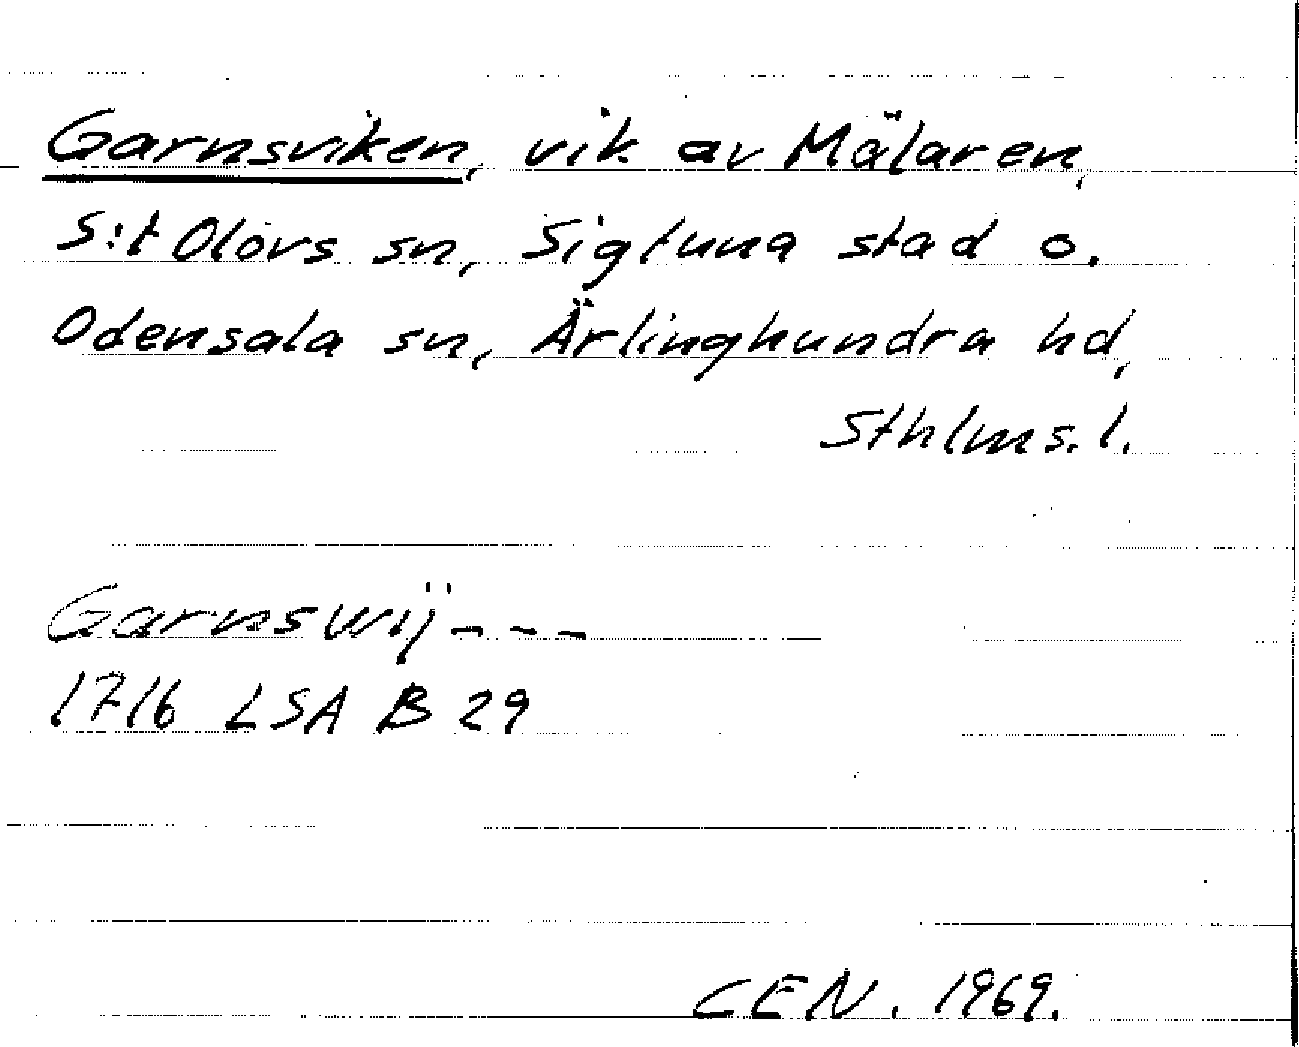 Garnsviken, vik av Mälaren,
S:t Olovs sn, Sigtuna stad o.
Odensala sn, Ärlinghundra hd,
Sthlms. l.
Garnswij - - -
1716 LSA B 29
CEN. 1969.